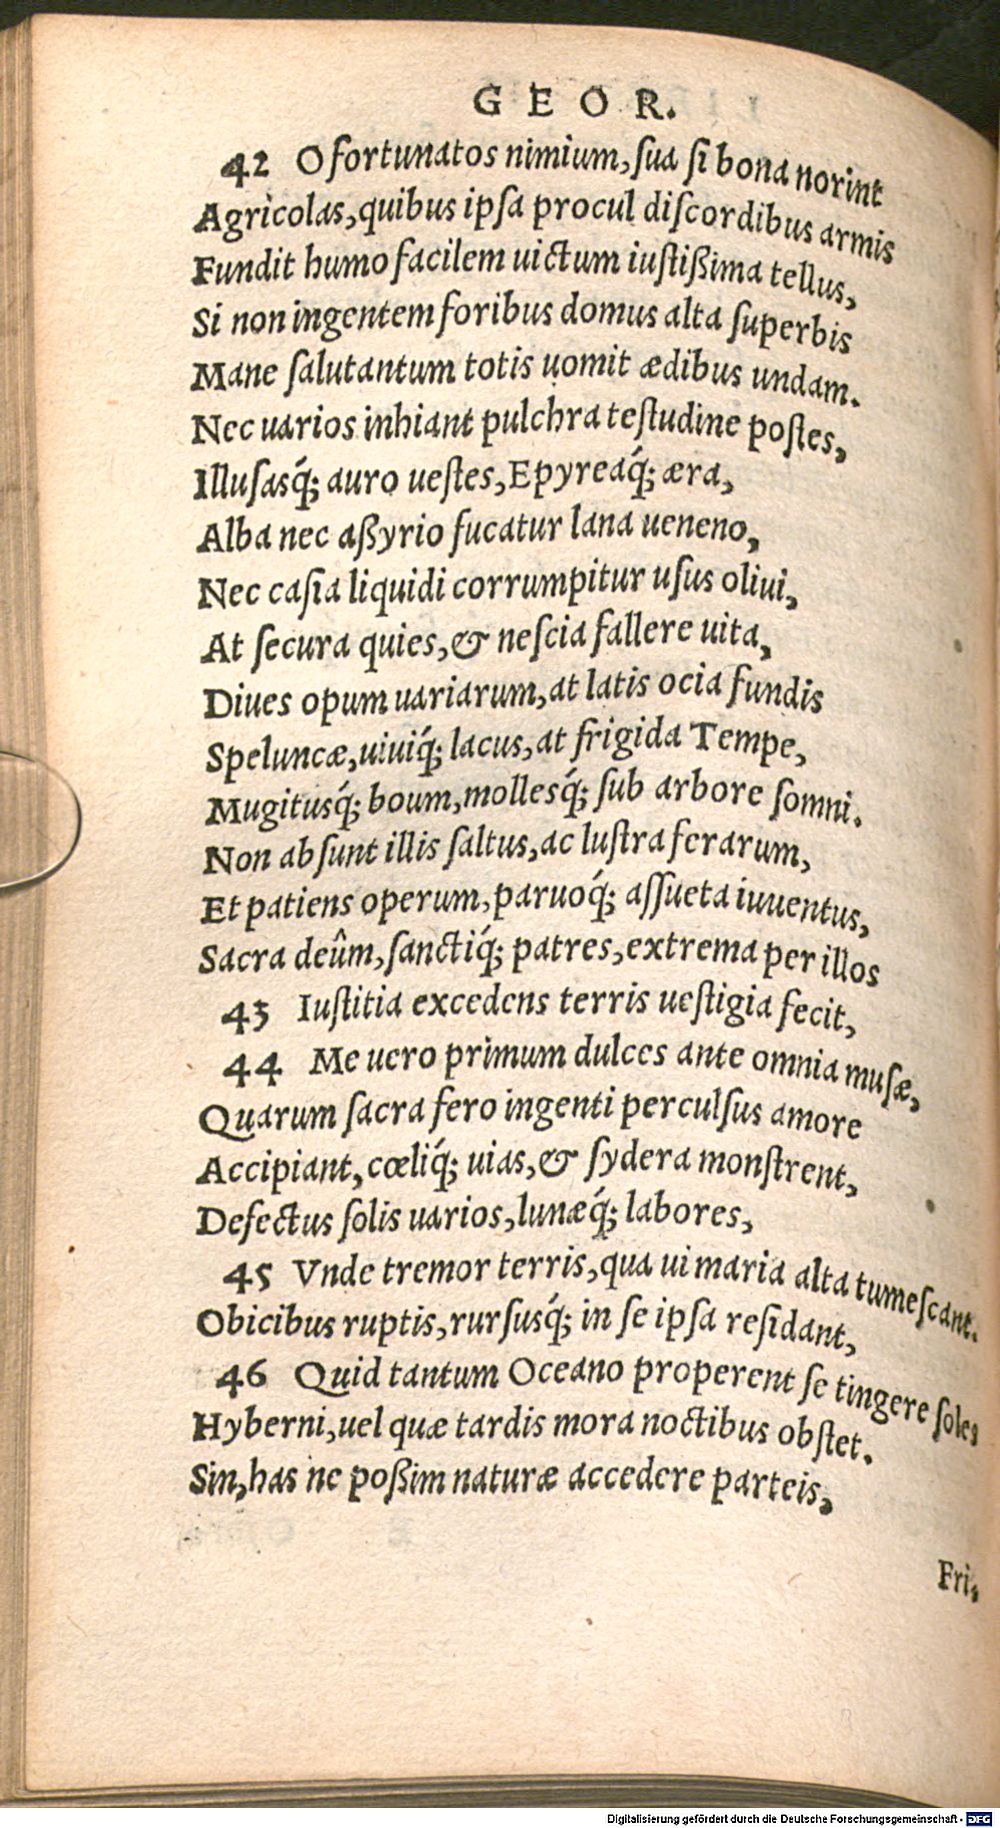 GEOR.
42 O fortunatos nimium, ſua ſi bona norint
Agricolas, quibus ipſa procul diſcordibus armis
Fundit humo facilem uictum iuſtißima tellus,
Si non ingentem foribus domus alta ſuperbis
Mane ſalutantum totis uomit ædibus undam.
Nec uarios inhiant pulchra teſtudine poſtes,
Illuſasq́; auro ueſtes, Epyreaq́; æra,
Alba nec aßyrio fucatur lana ueneno,
Nec caſia liquidi corrumpitur uſus oliui,
At ſecura quies, & neſcia fallere uita,
Diues opum uariarum, at latis ocia fundis
Speluncæ, uiuiq́; lacus, at frigida Tempe,
Mugitusq́; boum, mollesq́; ſub arbore ſomni.
Non abſunt illis ſaltus, ac luſtra ferarum,
Et patiens operum, paruoq́; aſſueta iuuentus,
Sacra deûm, ſanctiq́; patres, extrema per illos
43 Iuſtitia excedens terris ueſtigia fecit,
44 Me uero primum dulces ante omnia muſæ,
Quarum ſacra fero ingenti perculſus amore
Accipiant, cœliq́; uias, & ſydera monſtrent,
Defectus ſolis uarios, lunæq́; labores,
45 Vnde tremor terris, qua ui maria alta tumeſcant.
Obicibus ruptis, rurſusq́; in ſe ipſa reſidant,
46 Quid tantum Oceano properent ſe tingere ſoles
Hyberni, uel quæ tardis mora noctibus obſtet.
Sin, has ne poßim naturæ accedere parteis,
Fri.
Digitalisierung gefördert durch die Deutsche Forschungsgemeinschaft - DFG